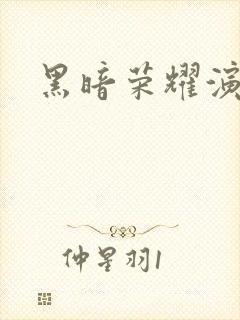 黑暗荣耀演
仲星羽1